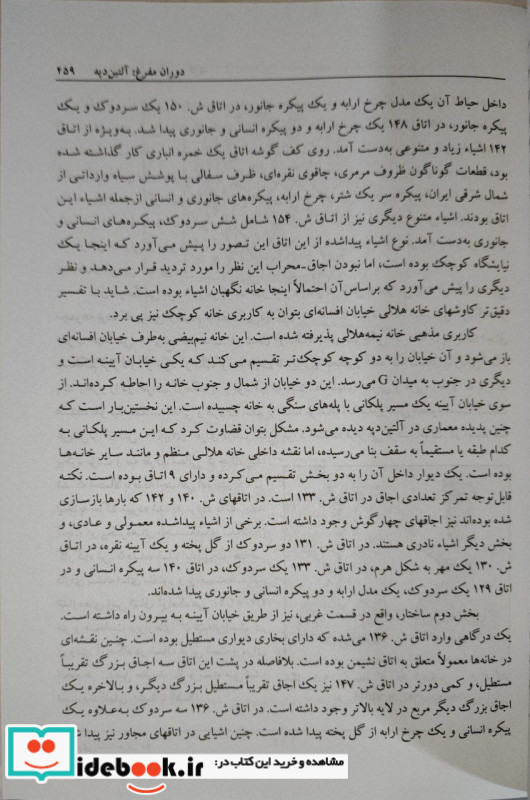 دوران مفرغ: آلتین‌دپه    ۴۵۹
داخل حیاط آن یک مدل چرخ ارابه و یک پیکره جانور، در اتاق ش. ۱۵۰ یک سردوک و یک
پیکره جانور، در اتاق ۱۴۸ یک چرخ ارابه و دو پیکره انسانی و جانوری پیدا شد. به‌ویژه از اتاق
۱۴۲ اشیاء زیاد و متنوعی به‌دست آمد. روی کف گوشه اتاق یک خمره انباری کار گذاشته شده
بود، قطعات گوناگون ظروف مرمری، چاقوی نقره‌ای، ظرف سفالی با پوشش سیاه وارداتی از
شمال شرقی ایران، پیکره سر یک شتر، چرخ ارابه، پیکره‌های جانوری و انسانی ازجمله اشیاء این
اتاق بودند. اشیاء متنوع دیگری نیز از اتاق ش. ۱۵۴ شامل شش سردوک، پیکره‌های انسانی و
جانوری به‌دست آمد. نوع اشیاء پیداشده از این اتاق این تصور را پیش می‌آورد که اینجا یک
نیایشگاه کوچک بوده است، اما نبودن اجاق-محراب این نظر را مورد تردید قرار می‌دهد و نظر
دیگری را پیش می‌آورد که براساس‌آن احتمالاً اینجا خانه نگهبان اشیاء بوده است. شاید با تفسیر
دقیق‌تر کاوشهای خانه هلالی خیابان افسانه‌ای بتوان به کاربری خانه کوچک نیز پی برد.
کاربری مذهبی خانه نیمه‌هلالی پذیرفته شده است. این خانه نیم‌بیضی به‌طرف خیابان افسانه‌ای
باز می‌شود و آن خیابان را به دو کوچه کوچک‌تر تقسیم می‌کند که یکی خیابان آیینه است و
دیگری در جنوب به میدان G می‌رسد. این دو خیابان از شمال و جنوب خانه را احاطه کرده‌اند. از
سوی خیابان آیینه یک مسیر پلکانی با پله‌های سنگی به خانه چسبیده است. این نخستین‌بار است که
چنین پدیده معماری در آلتین‌دپه دیده می‌شود. مشکل بتوان قضاوت کرد که این مسیر پلکانی به
کدام طبقه یا مستقیماً به سقف بنا می‌رسیده، اما نقشه داخلی خانه هلالی منظم و مانند سایر خانه‌ها
بوده است. یک دیوار داخل آن را به دو بخش تقسیم می‌کرده و دارای ۹ اتاق بوده است. نکته
قابل‌توجه تمرکز تعدادی اجاق در اتاق ش. ۱۳۳ است. در اتاقهای ش. ۱۴۰ و ۱۴۲ که بارها بازسازی
شده بوده‌اند نیز اجاقهای چهارگوش وجود داشته است. برخی از اشیاء پیداشده معمولی و عادی، و
بخش دیگر اشیاء نادری هستند. در اتاق ش. ۱۳۱ دو سردوک از گل پخته و یک آیینه نقره، در اتاق
ش. ۱۳۰ یک مهر به شکل هرم، در اتاق ش. ۱۳۳ یک سردوک، در اتاق ۱۴۰ سه پیکره انسانی و در
اتاق ۱۲۹ یک سردوک، یک مدل ارابه و دو پیکره انسانی و جانوری پیدا شده‌اند.
بخش دوم ساختار، واقع در قسمت غربی، نیز از طریق خیابان آیینه به بیرون راه داشته است.
یک درگاهی وارد اتاق ش. ۱۳۶ می‌شده که دارای بخاری دیواری مستطیل بوده است. چنین نقشه‌ای
در خانه‌ها معمولاً متعلق به اتاق نشیمن بوده است. بلافاصله در پشت این اتاق سه اجاق بزرگ تقریباً
مستطیل، و کمی دورتر در اتاق ش. ۱۴۷ نیز یک اجاق تقریباً مستطیل بزرگ دیگر، و بالاخره یک
اجاق بزرگ دیگر مربع در لایه بالاتر وجود داشته است. در اتاق ش. ۱۳۶ سه سردوک به‌علاوه یک
پیکره انسانی و یک چرخ ارابه از گل پخته پیدا شده است. چنین اشیایی در اتاقهای مجاور نیز پیدا
مشاهده و خرید این کتاب در:
idebook.ir